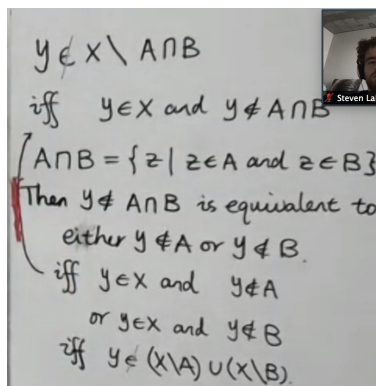 y ∈ X \ A∩B
iff y∈X and y∉A∩B
A∩B = {z | z∈A and z∈B}
Then y∉A∩B is equivalent to
either y∉A or y∉B.
iff y∈X and y∉A
or y∈X and y∉B
iff y∈(X\A)∪(X\B).
Steven La